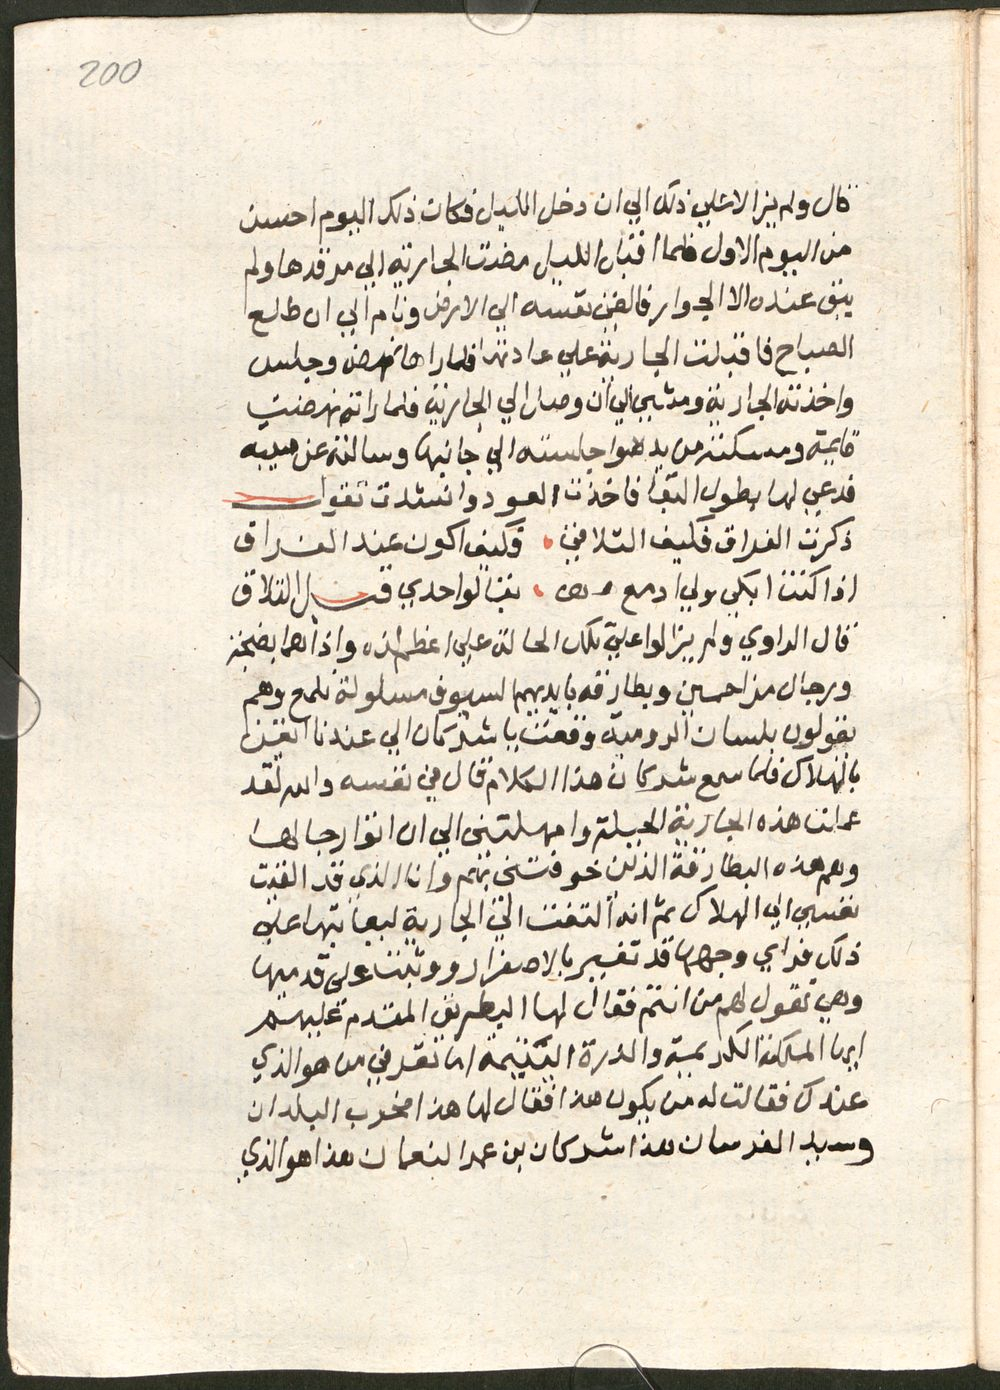 200
قال ولم يزالا علي ذلك الي ان دخل الليل فكان ذلك اليوم احسن
من اليوم الاول فلما اقبل الليل مضت الجارية الي مرقدها ولم
يبق عنده الا الجوار فالقي نفسه الي الارض ونام الي ان طلع
الصباح فاقبلت الجارية علي عادتها فلما راها نهض وجلس
واخذته الجارية ومشي الي ان وصل الي الجارية فلما راته نهضت
قايمة ومسكته من يده واجلسته الي جانبها وسالته عن مبيته
فدعي لها بطول البقا فاخذت العود وانشدت تقول
ذكرت الفراق فكيف التلاقي وكيف اكون عند الفراق
اذا كنت ابكي ولي ادمع لواحدي قبل التلاق
قال الراوي ولم يزالوا علي تلك الحالة علي اعظم لذه واذا هما بضجة
ورجال مزاحمين وبطارقه بايديهم السيوف مسلولة تلمع وهم
يقولون بلسان الرومية وقعت يا شركان الي عندنا ايقن
بالهلاك فلما سمع شركان هذا الكلام قال في نفسه والله لقد
عملت هذه الجارية الحيلة وامهلتني الي ان اتوا رجالها
وهم هذه البطارقة الذين خوفتني بهم وانا الذي قد القيت
نفسي الي الهلاك ثم انه التفت الي الجارية ليعاتبها علي
ذلك فراي وجهها قد تغير بالاصفرار ووثبت علي قدميها
وهي تقول لهم من انتم فقال لها البطريق المقدم عليهم
ايها الملكة الكريمة والدرة اليتيمة اما تعرفي من هو الذي
عندك فقالت له من يكون هذا فقال لها هذا مخرب البلدان
وسيد الفرسان هذا شركان بن عمر النعمان هذا هو الذي